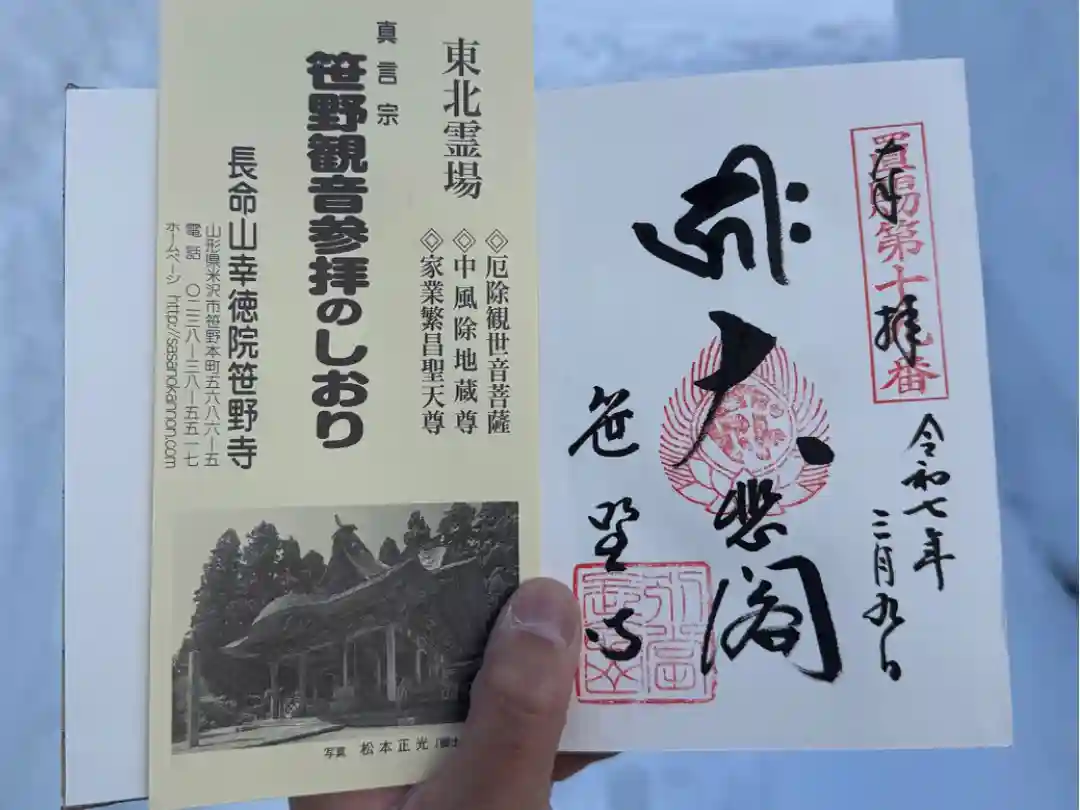 東北霊場
◇厄除観世音菩薩
◇中風除地蔵尊
◇家業繁昌聖天尊
真言宗
笹野観音参拝のしおり
長命山幸徳院笹野寺
山形県米沢市笹野本町五六八六ー五
電話 〇二三八ー三八ー五五一七
ホームページ http://sasanokannon.com
写真 松本正光
奉拝
置賜第十九番
令和七年
三月九日
大悲閣
笹野寺